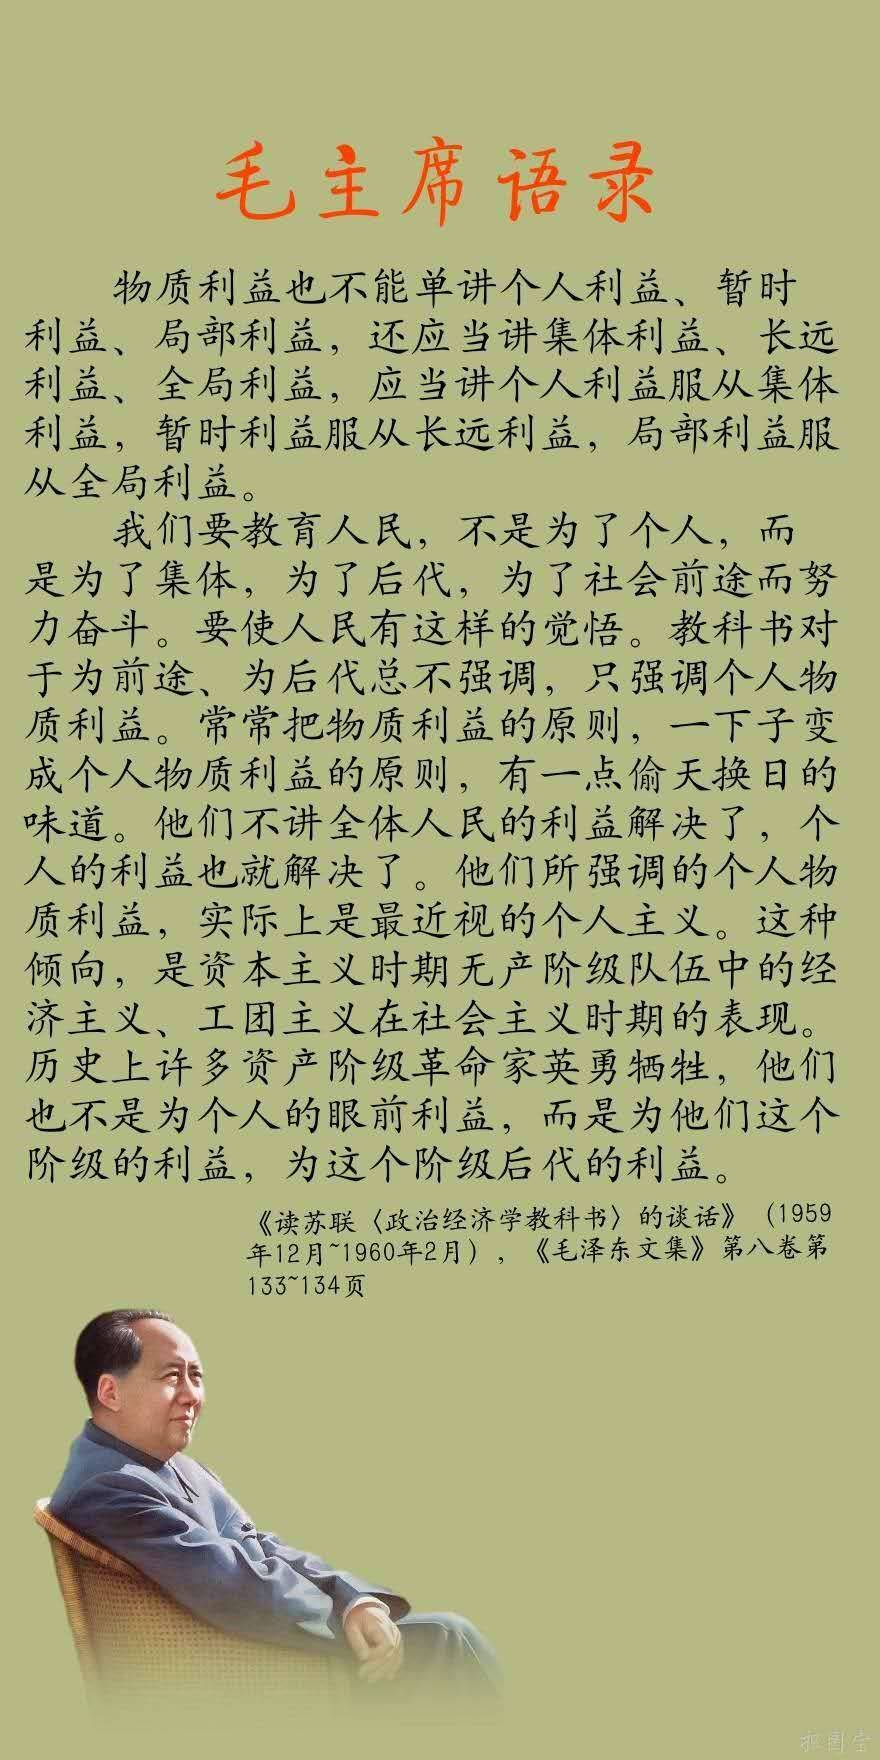 毛主席语录
物质利益也不能单讲个人利益、暂时
利益、局部利益，还应当讲集体利益、长远
利益、全局利益，应当讲个人利益服从集体
利益，暂时利益服从长远利益，局部利益服
从全局利益。
我们要教育人民，不是为了个人，而
是为了集体，为了后代，为了社会前途而努
力奋斗。要使人民有这样的觉悟。教科书对
于为前途、为后代总不强调，只强调个人物
质利益。常常把物质利益的原则，一下子变
成个人物质利益的原则，有一点偷天换日的
味道。他们不讲全体人民的利益解决了，个
人的利益也就解决了。他们所强调的个人物
质利益，实际上是最近视的个人主义。这种
倾向，是资本主义时期无产阶级队伍中的经
济主义、工团主义在社会主义时期的表现。
历史上许多资产阶级革命家英勇牺牲，他们
也不是为个人的眼前利益，而是为他们这个
阶级的利益，为这个阶级后代的利益。
《读苏联〈政治经济学教科书〉的谈话》（1959
年12月~1960年2月），《毛泽东文集》第八卷第
133~134页
抠图宝